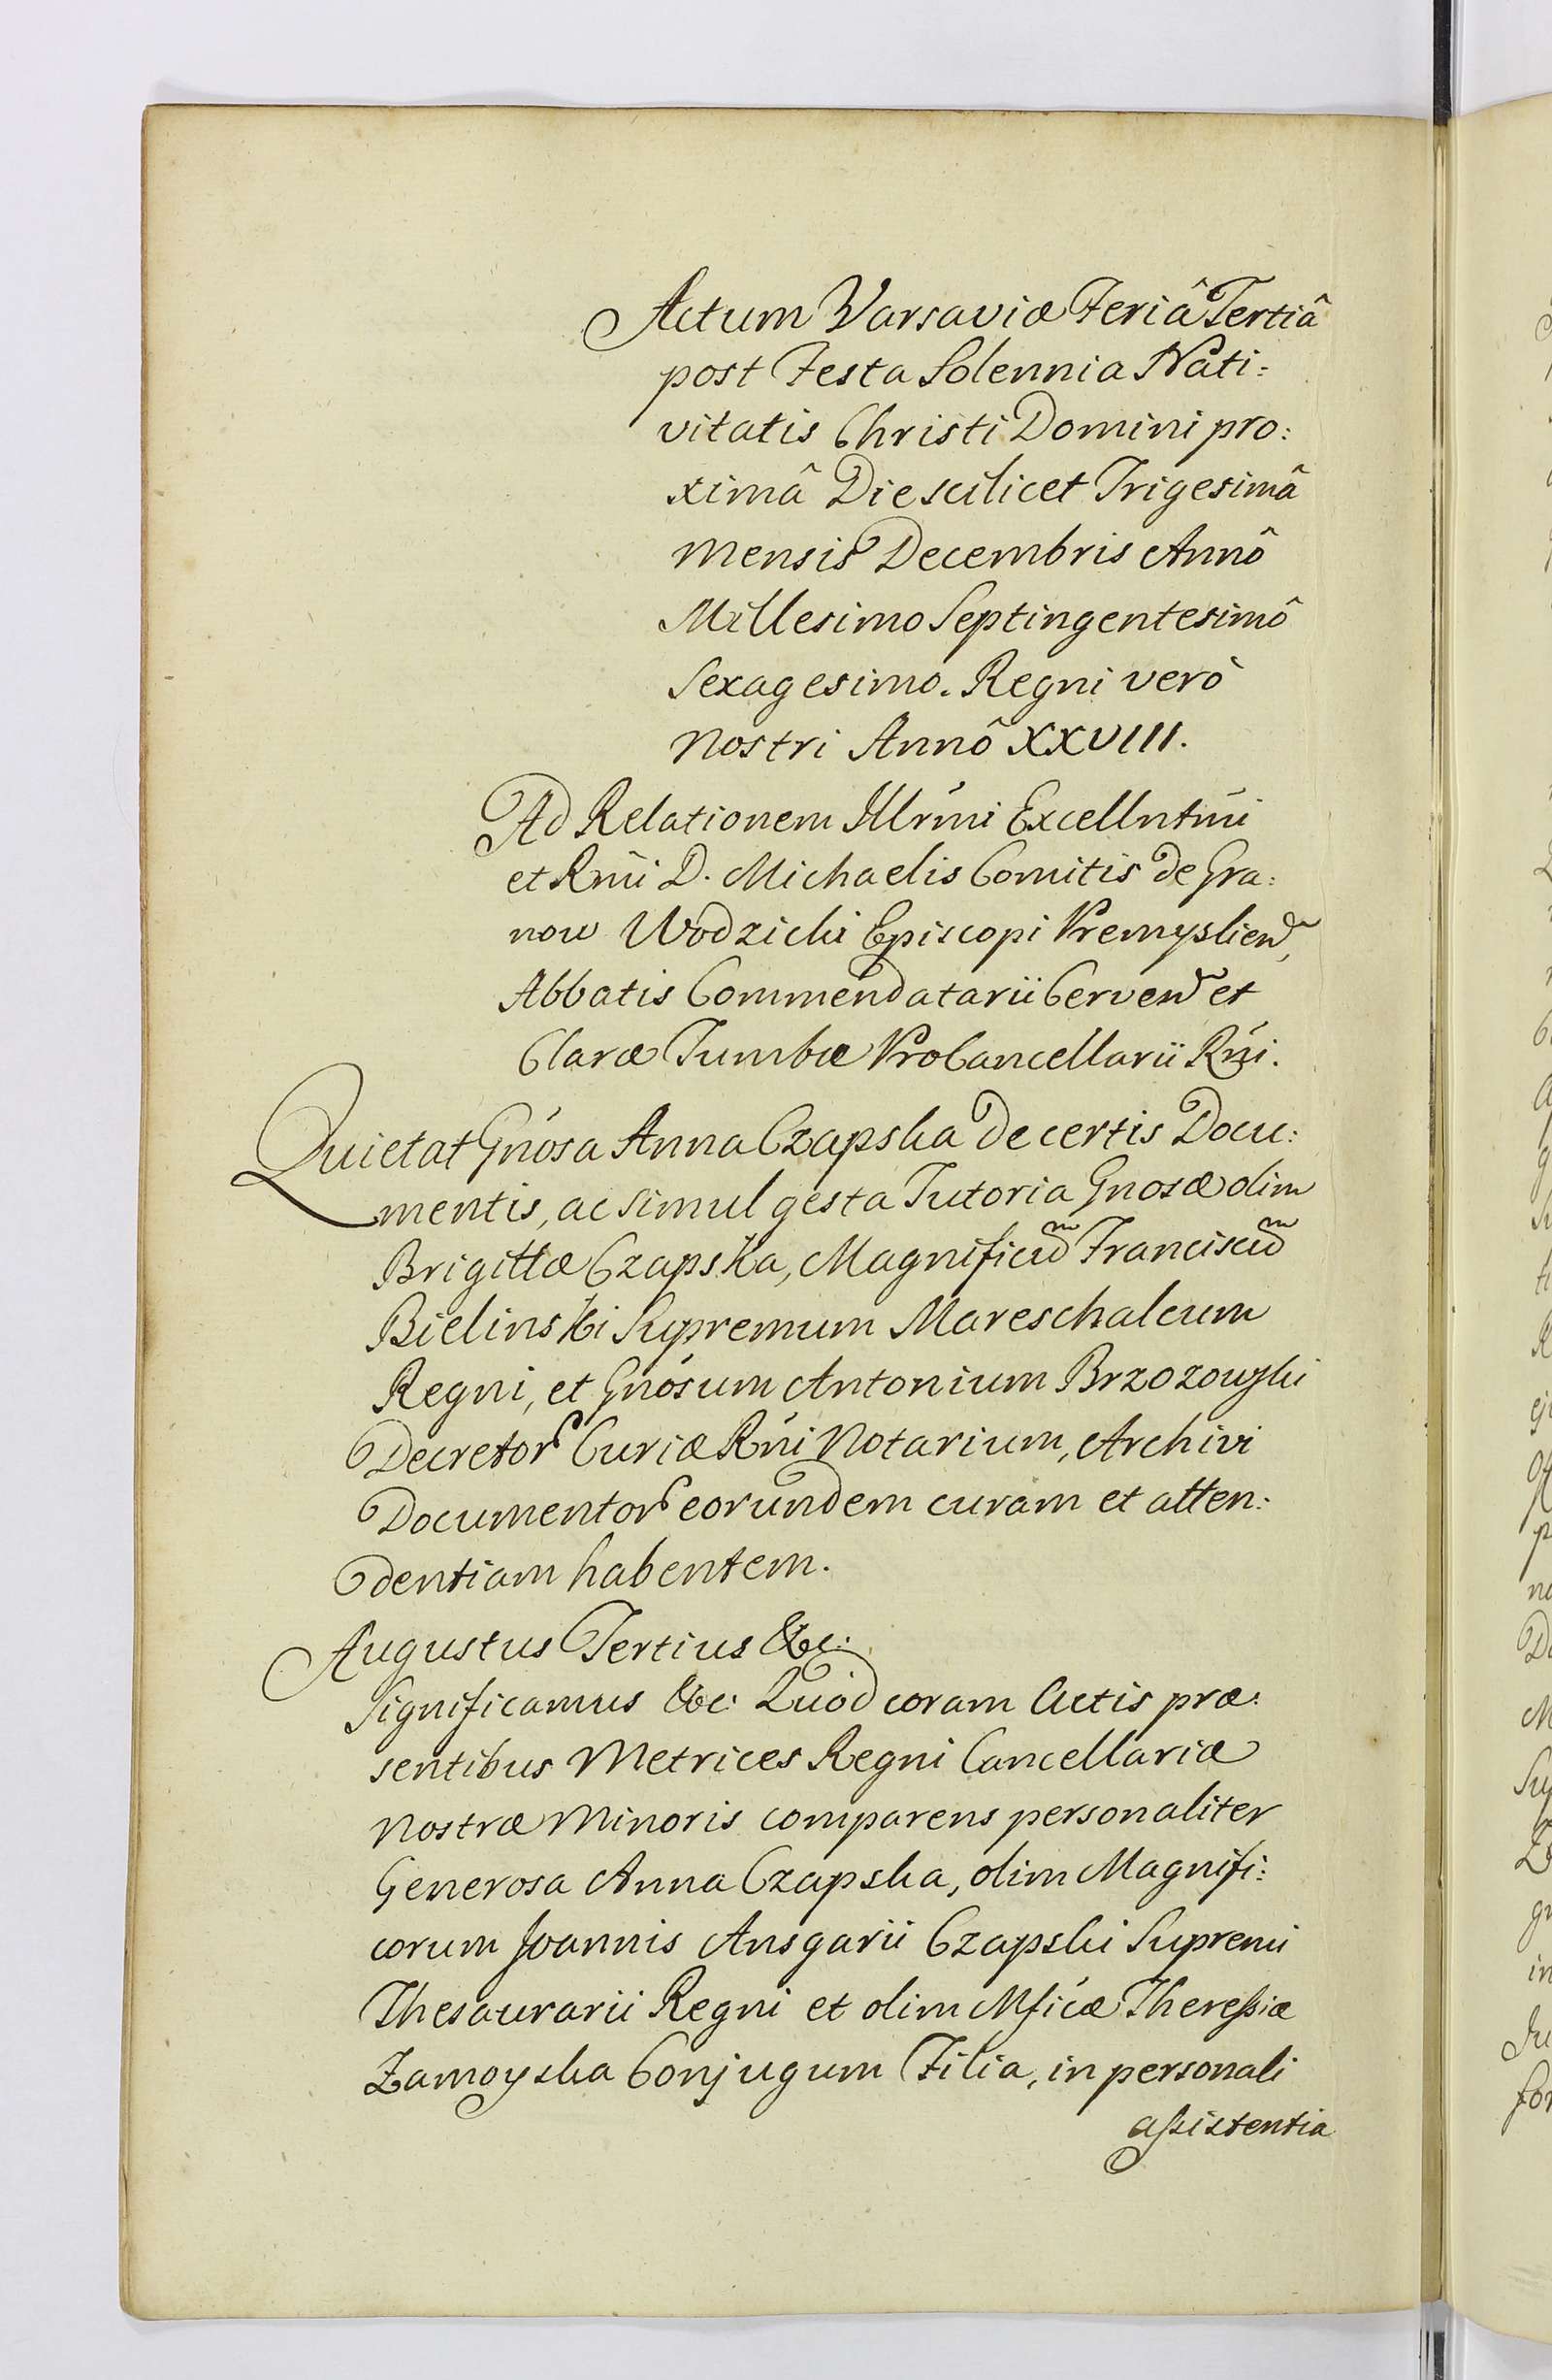 Actum Varsaviæ Feriâ Tertiâ
post Festa Solennia Nati:
vitatis Christi Domini pro:
ximâ Die scilicet Trigesimâ
Mensis Decembris Annô
Millesimo Septingentesimô
Sexagesimo. Regni verò
Nostri Annô XXVIII.
Ad Relationem Illrmi Excellntmi
et Rmi D. Michaelis Comitis de Gra:
now Wodzicki Episcopi Premyslien,
Abbatis Commendatarii Cerven et
Claræ Tumbæ ProCancellarii Rni.
Quietat Gnosa Anna Czapska de certis Docu:
mentis, ac simul gesta Tutoria Gnosæ olim
Brigittæ Czapska, Magnificum Franciscum
Bielinski Supremum Mareschalcum
Regni, et Gnosum Antonium Brzozowski
Decretor Curiæ Rni Notarium, Archivi
Documentor eorundem curam et atten:
dentiam habentem.
Augustus Tertius &c:
Significamus &c: Quod coram Actis præ:
sentibus Metrices Regni Cancellariæ
Nostræ Minoris comparens personaliter
Generosa Anna Czapska, olim Magnifi:
corum Joannis Ansgarii Czapski Supremi
Thesaurarii Regni et olim Mficæ Theressiæ
Zamoyska Conjugum Filia, in personali
assistentia